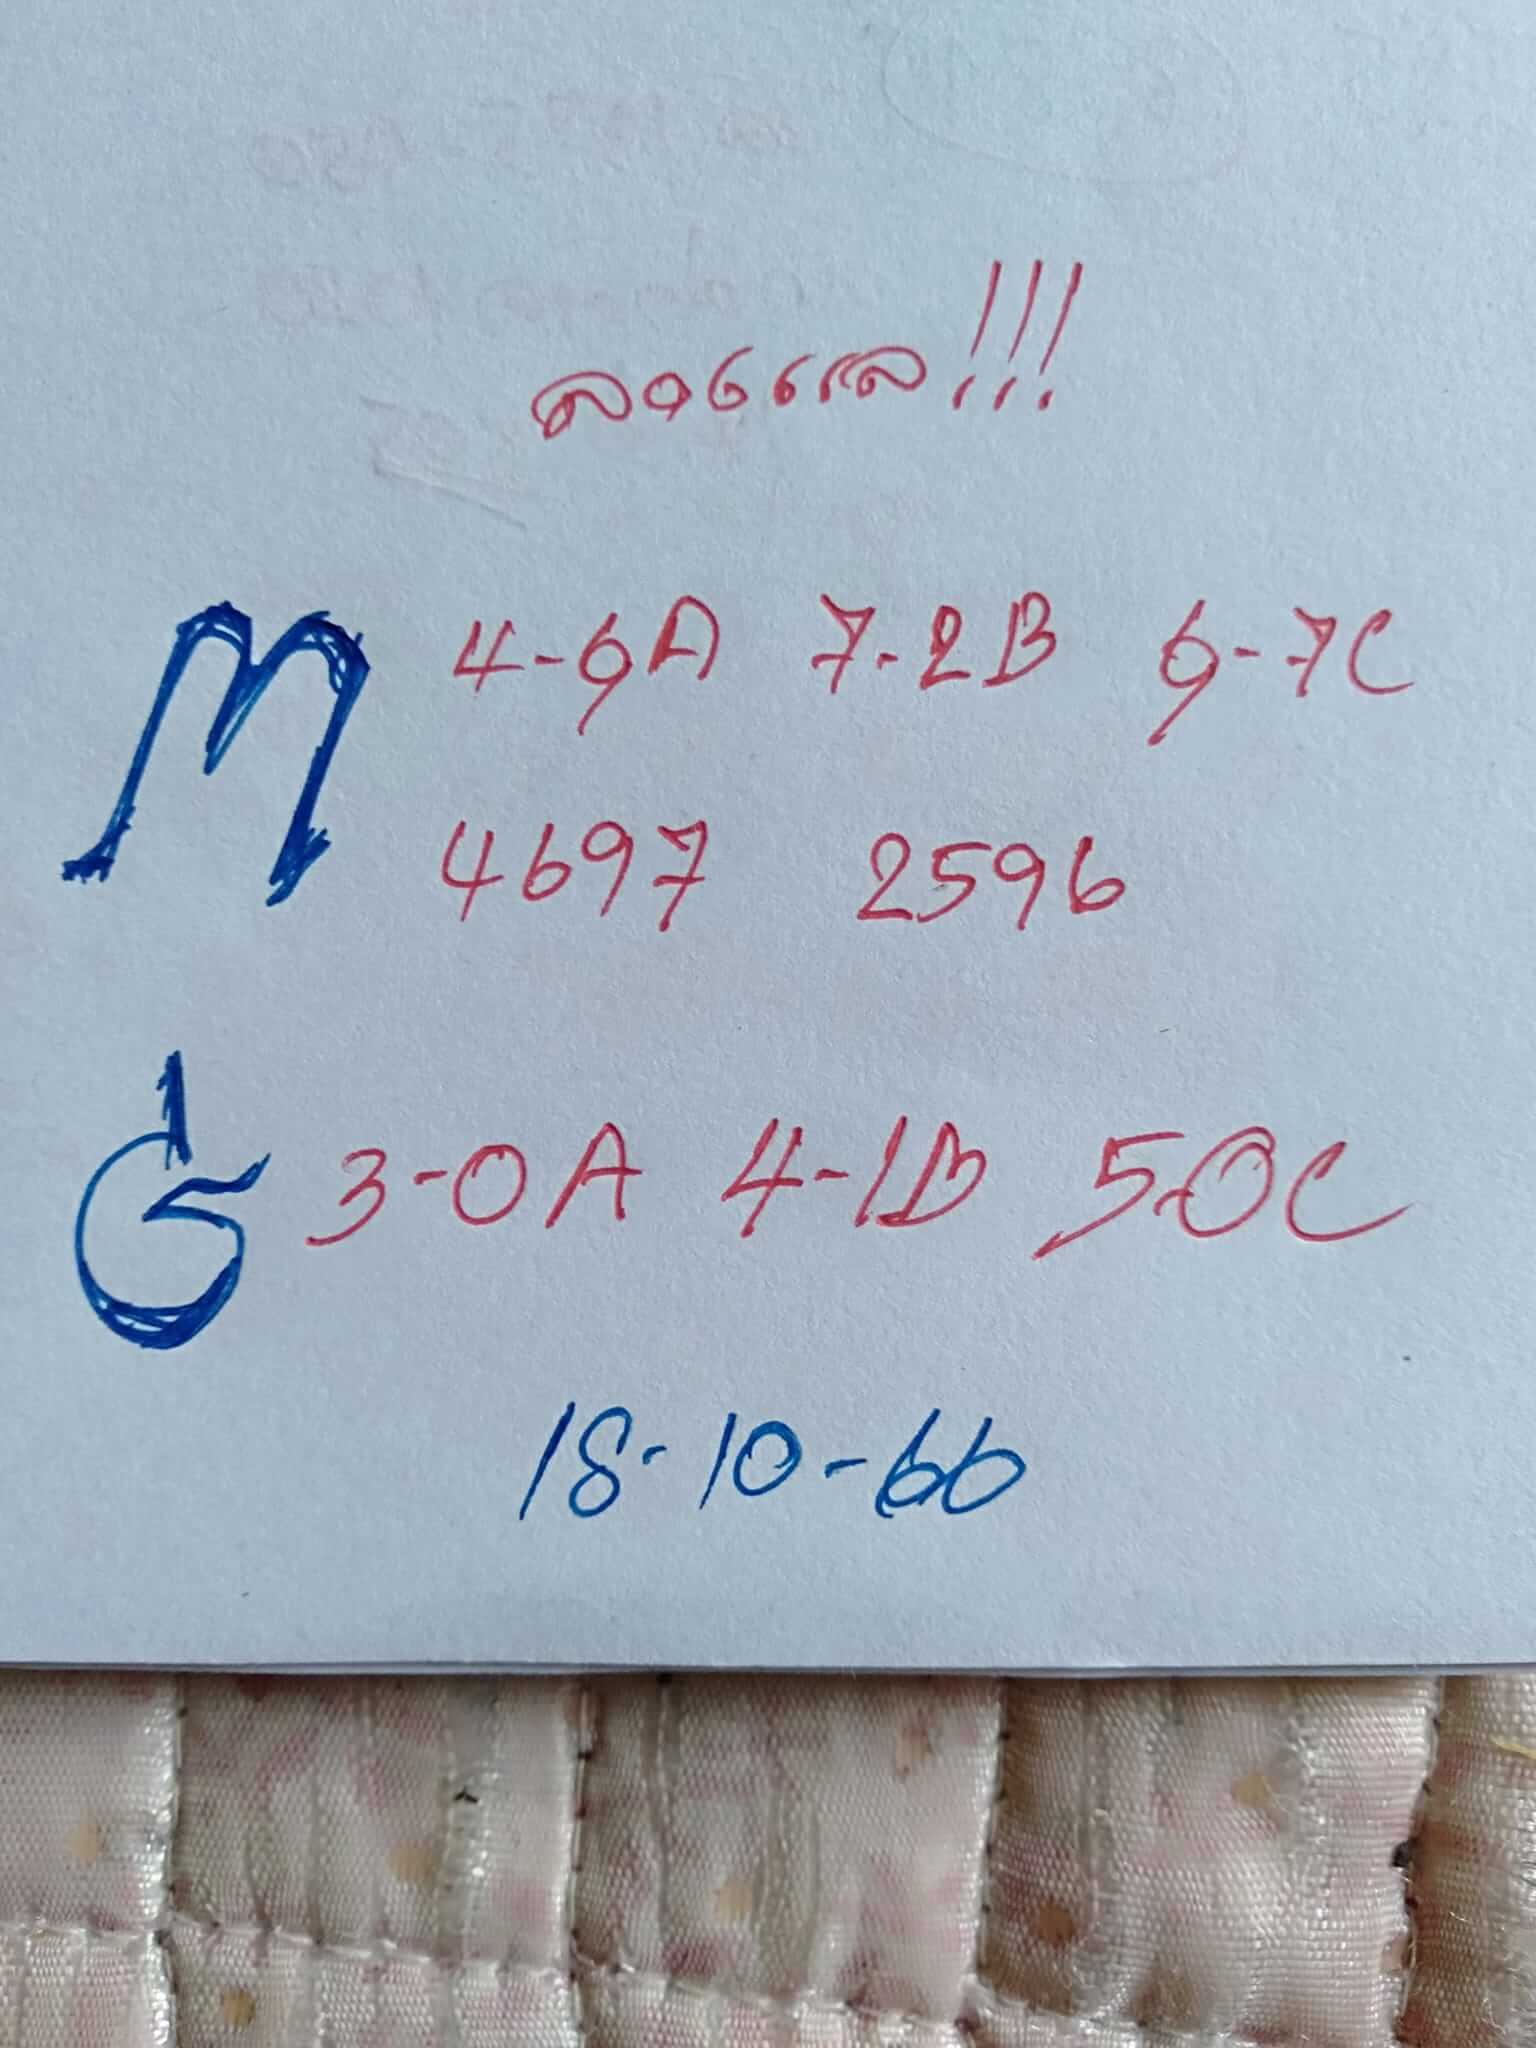 ลองแล!!!
M 4-9A 7-2B 9-7C
4697 2596
3-0A 4-1B 5-0C
18-10-66